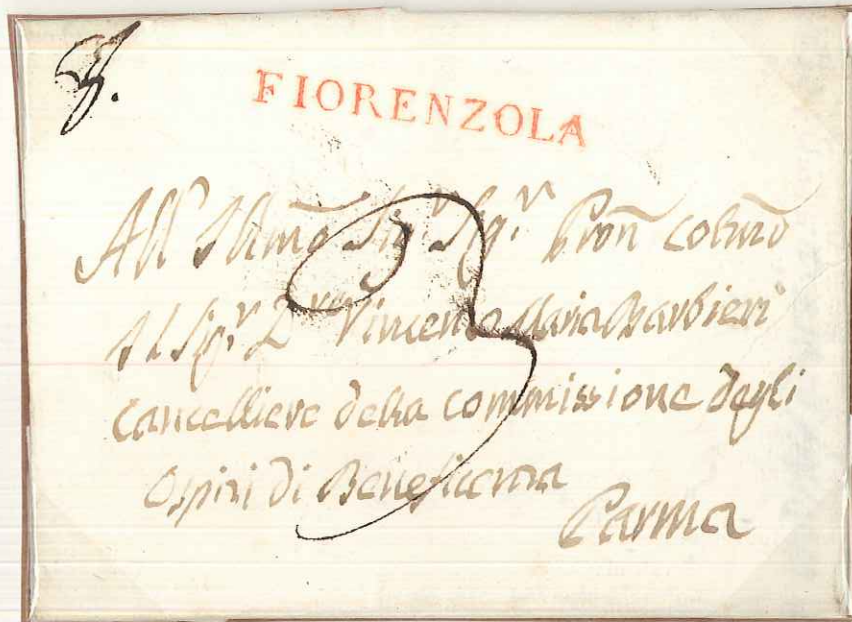 FIORENZOLA
3
All' Illmõ Sigr Sigr Pron̄ Colmõ
Il Sigr Dre Vincenzo Maria Barbieri
Cancelliere della Commissione degli
Ospizi di Beneficenza
Parma